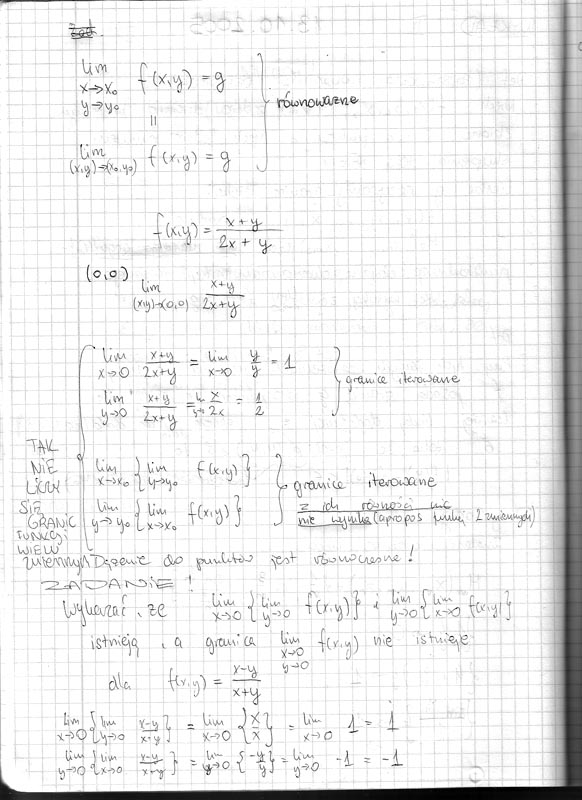 Zad.
lim x→x₀ y→y₀ f(x,y) = g
=
równoważne
lim (x,y)→(x₀,y₀) f(x,y) = g
f(x,y) = (x+y)/(2x+y)
(0,0) lim (x,y)→(0,0) (x+y)/(2x+y)
lim x→0 (x+y)/(2x+y) = lim x→0 y/y = 1
granice iterowane
lim y→0 (x+y)/(2x+y) = lim y→0 x/2x = 1/2
TAK NIE LICZY SIĘ GRANIC FUNKCJI WIELU ZMIENNYCH
lim x→x₀ {lim y→y₀ f(x,y)}
lim y→y₀ {lim x→x₀ f(x,y)}
granice iterowane
z ich równości nic
nie wynika (apropos funkcji 2 zmiennych)
Dążenie do punktów jest równoczesne!
ZADANIE!
Wykazać, że lim x→0 {lim y→0 f(x,y)} i lim y→0 {lim x→0 f(x,y)}
istnieją, a granica lim x→0 y→0 f(x,y) nie istnieje
dla f(x,y) = (x-y)/(x+y)
lim x→0 {lim y→0 (x-y)/(x+y)} = lim x→0 {x/x} = lim x→0 1 = 1
lim y→0 {lim x→0 (x-y)/(x+y)} = lim y→0 {-y/y} = lim y→0 -1 = -1